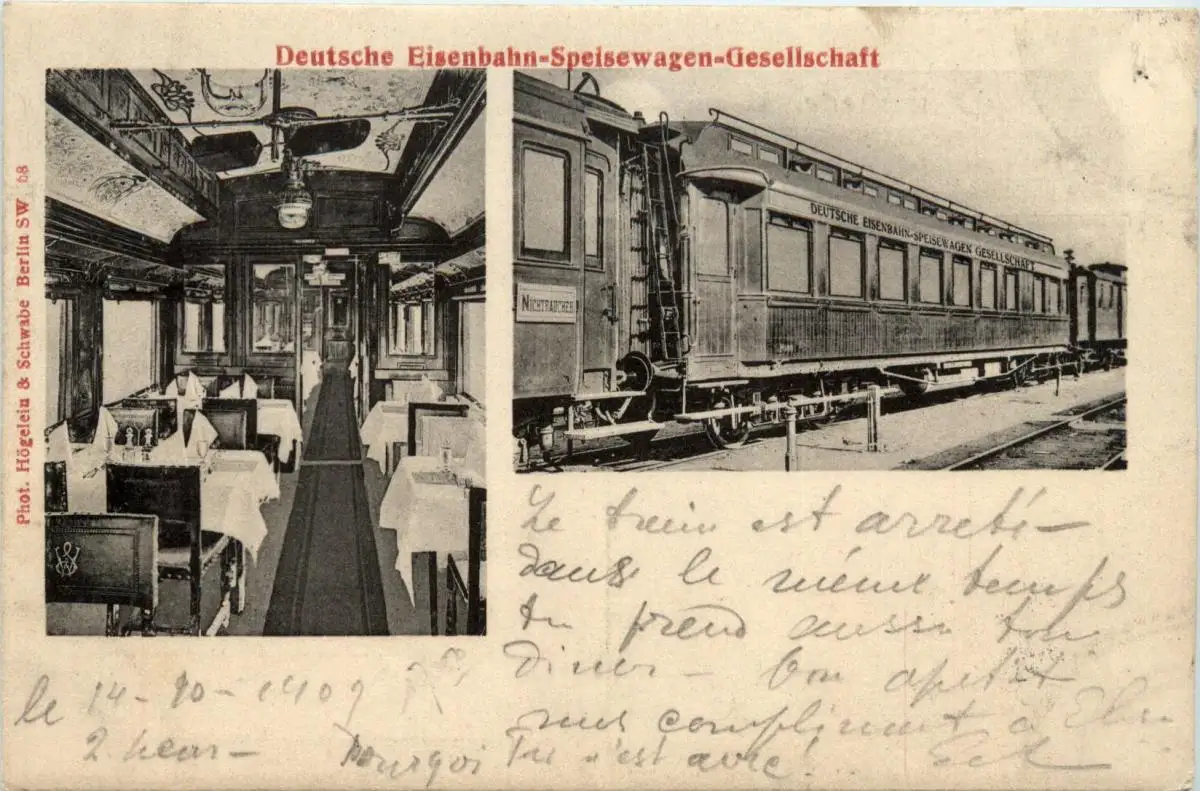 Deutsche Eisenbahn-Speisewagen-Gesellschaft
Phot. Högelein & Schwabe Berlin SW 68
NICHTRAUCHER
DEUTSCHE EISENBAHN-SPEISEWAGEN GESELLSCHAFT
Le train est arreté -
dans le même temps
tu prend aussi ton
diner - bon apetit
mes compliment à
le 14-10-1909
2 heur - Pourquoi